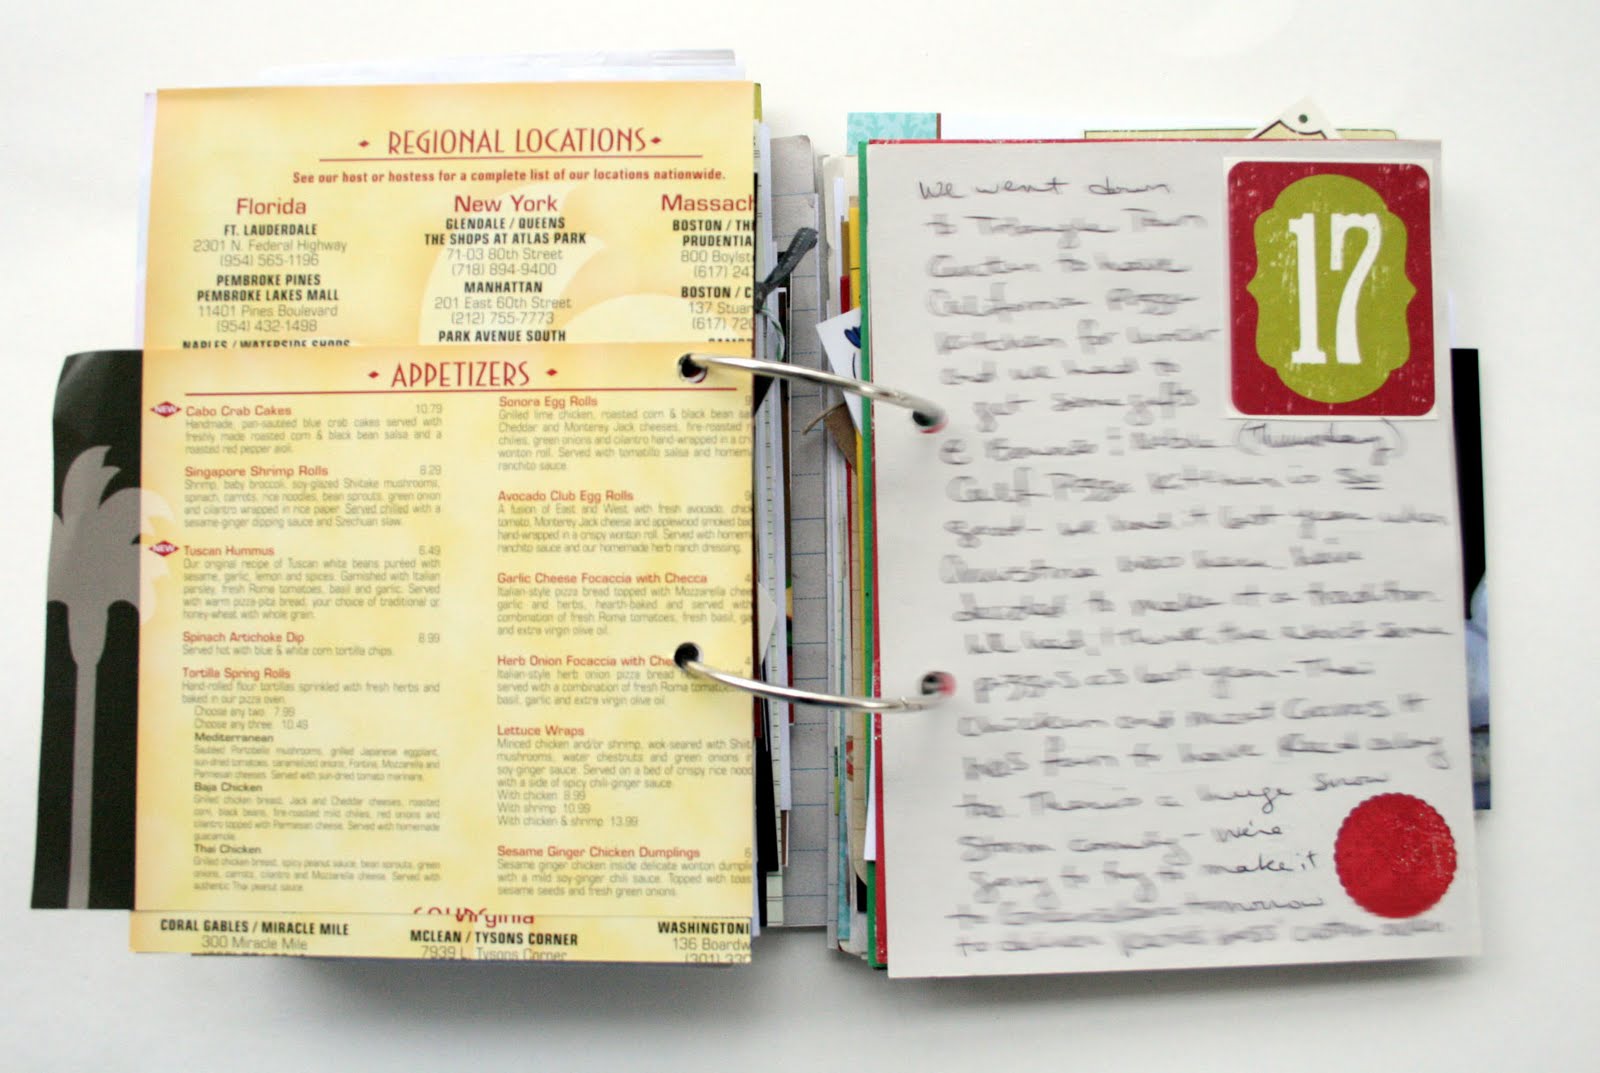 REGIONAL LOCATIONS
See our host or hostess for a complete list of our locations nationwide.
Florida
FT. LAUDERDALE
2301 N. Federal Highway
(954) 565-1196
PEMBROKE PINES
PEMBROKE LAKES MALL
11401 Pines Boulevard
(954) 432-1498
NAPLES / WATERSIDE SHOPS
New York
GLENDALE / QUEENS
THE SHOPS AT ATLAS PARK
71-03 80th Street
(718) 894-9400
MANHATTAN
201 East 60th Street
(212) 755-7773
PARK AVENUE SOUTH
Massach
BOSTON / THE
PRUDENTIA
800 Boylst
(617) 247
BOSTON / C
137 Stuar
(617) 720
APPETIZERS
NEW Cabo Crab Cakes 10.79
Handmade, pan-sautéed blue crab cakes served with
freshly made roasted corn & black bean salsa and a
roasted red pepper aioli.
Singapore Shrimp Rolls 8.29
Shrimp, baby broccoli, soy-glazed Shiitake mushrooms,
spinach, carrots, rice noodles, bean sprouts, green onion
and cilantro wrapped in rice paper. Served chilled with a
sesame-ginger dipping sauce and Szechuan slaw.
NEW Tuscan Hummus 6.49
Our original recipe of Tuscan white beans puréed with
sesame, garlic, lemon and spices. Garnished with Italian
parsley, fresh Roma tomatoes, basil and garlic. Served
with warm pizza-pita bread, your choice of traditional or
honey-wheat with whole grain.
Spinach Artichoke Dip 8.99
Served hot with blue & white corn tortilla chips.
Tortilla Spring Rolls
Hand-rolled flour tortillas sprinkled with fresh herbs and
baked in our pizza oven.
Choose any two 7.99
Choose any three 10.49
Mediterranean
Sautéed Portobello mushrooms, grilled Japanese eggplant,
sun-dried tomatoes, caramelized onions, Fontina, Mozzarella and
Parmesan cheeses. Served with sun-dried tomato marinara.
Baja Chicken
Grilled chicken breast, Jack and Cheddar cheeses, roasted
corn, black beans, fire-roasted mild chilies, red onions and
cilantro topped with Parmesan cheese. Served with homemade
guacamole.
Thai Chicken
Grilled chicken breast, spicy peanut sauce, bean sprouts, green
onions, carrots, cilantro and Mozzarella cheese. Served with
authentic Thai peanut sauce.
Sonora Egg Rolls 9
Grilled lime chicken, roasted corn & black bean sa
Cheddar and Monterey Jack cheeses, fire-roasted r
chilies, green onions and cilantro hand-wrapped in a cri
wonton roll. Served with tomatillo salsa and homem
ranchito sauce.
Avocado Club Egg Rolls 9
A fusion of East and West with fresh avocado, chick
tomato, Monterey Jack cheese and applewood smoked bac
hand-wrapped in a crispy wonton roll. Served with homem
ranchito sauce and our homemade herb ranch dressing.
Garlic Cheese Focaccia with Checca 4
Italian-style pizza bread topped with Mozzarella chee
garlic and herbs, hearth-baked and served with
combination of fresh Roma tomatoes, fresh basil, ga
and extra virgin olive oil.
Herb Onion Focaccia with Chec 4
Italian-style herb onion pizza bread
served with a combination of fresh Roma tomatoes
basil, garlic and extra virgin olive oil.
Lettuce Wraps
Minced chicken and/or shrimp, wok-seared with Shiit
mushrooms, water chestnuts and green onions in
soy-ginger sauce. Served on a bed of crispy rice nood
with a side of spicy chili-ginger sauce.
With chicken 8.99
With shrimp 10.99
With chicken & shrimp 13.99
Sesame Ginger Chicken Dumplings 6
Sesame ginger chicken inside delicate wonton dumpli
with a mild soy-ginger chili sauce. Topped with toas
sesame seeds and fresh green onions.
CORAL GABLES / MIRACLE MILE
300 Miracle Mile
Virginia
MCLEAN / TYSONS CORNER
7939 L Tysons Corner
WASHINGTONI
136 Boardw
(301) 330
17
We went down
to Triangle Town
Center to have
California Pizza
Kitchen for lunch
and we had to
get some gifts
(Thursday)
Calif Pizza Kitchen is so
good - we had it last year when
Christine was here. We've
decided to make it a tradition.
We had, I think, the exact same
pizzas as last year - Thai
Chicken and Meat Cravers. It
was fun to have Read along
too. There's a huge snow
storm coming - we're
going to try to make it
to tomorrow
to